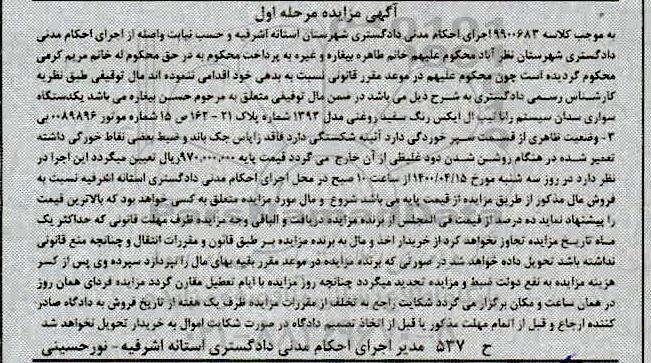 آگهی مزایده مرحله اول
به موجب کلاسه ۹۹۰۰۶۸۳ اجرای احکام مدنی دادگستری شهرستان استانه اشرفیه و حسب نیابت واصله از اجرای احکام مدنی
دادگستری شهرستان نظر آباد محکوم علیهم خانم طاهره بیغاره و غیره به پرداخت محکوم به در حق محکوم له خانم مریم کرمی
محکوم گردیده است چون محکوم علیهم در موعد مقرر قانونی نسبت به بدهی خود اقدامی ننموده اند مال توقیفی طبق نظریه
کارشناس رسمی دادگستری به شرح ذیل می باشد در ضمن مال توقیفی متعلق به مرحوم حسین بیغاره می باشد یکدستگاه
سواری سدان سیستم رانا تیپ ال ایکس رنگ سفید روغنی مدل ۱۳۹۳ شماره پلاک ۲۱ - ۱۶۲ ص ۱۵ شماره موتور ۰۰۸۹۸۹۶ بی
۳- وضعیت ظاهری از قسمت سپر خوردگی دارد آئینه شکستگی دارد فاقد زاپاس جک باند و ضبط بعضی نقاط خورگی داشته
تعمیر شده در هنگام روشن شدن دود غلیظی از آن خارج می گردد قیمت پایه ۹۷۰,۰۰۰,۰۰۰ریال تعیین میگردد این اجرا در
نظر دارد در روز سه شنبه مورخ ۱۴۰۰/۰۴/۱۵ از ساعت ۱۰ صبح در محل اجرای احکام مدنی دادگستری استانه اشرفیه نسبت به
فروش مال مذکور از طریق مزایده از قیمت پایه می باشد شروع و مال مورد مزایده متعلق به کسی خواهد بود که بالاترین قیمت
را پیشنهاد نماید ده درصد از قیمت فی المجلس از برنده مزایده دریافت و الباقی وجه مزایده ظرف مهلت قانونی که حداکثر یک
ماه تاریخ مزایده تجاوز نخواهد کرد از خریدار اخذ و مال به برنده مزایده بر طبق قانون و مقررات انتقال و چنانچه منع قانونی
نداشته باشد تحویل داده خواهد شد در صورتی که برنده مزایده در موعد مقرر بقیه بهای مال را نپردازد سپرده وی پس از کسر
هزینه مزایده به نفع دولت ضبط و مزایده تجدید میگردد چنانچه روز مزایده با ایام تعطیل مقارن گردد مزایده فردای همان روز
در همان ساعت و مکان برگزار می گردد شکایت راجع به تخلف از مقررات مزایده ظرف یک هفته از تاریخ فروش به دادگاه صادر
کننده ارجاع و قبل از اتمام مهلت مذکور یا قبل از اتخاذ تصمیم دادگاه در صورت شکایت اموال به خریدار تحویل نخواهد شد
ح ۵۳۷ مدیر اجرای احکام مدنی دادگستری استانه اشرفیه - نورحسینی